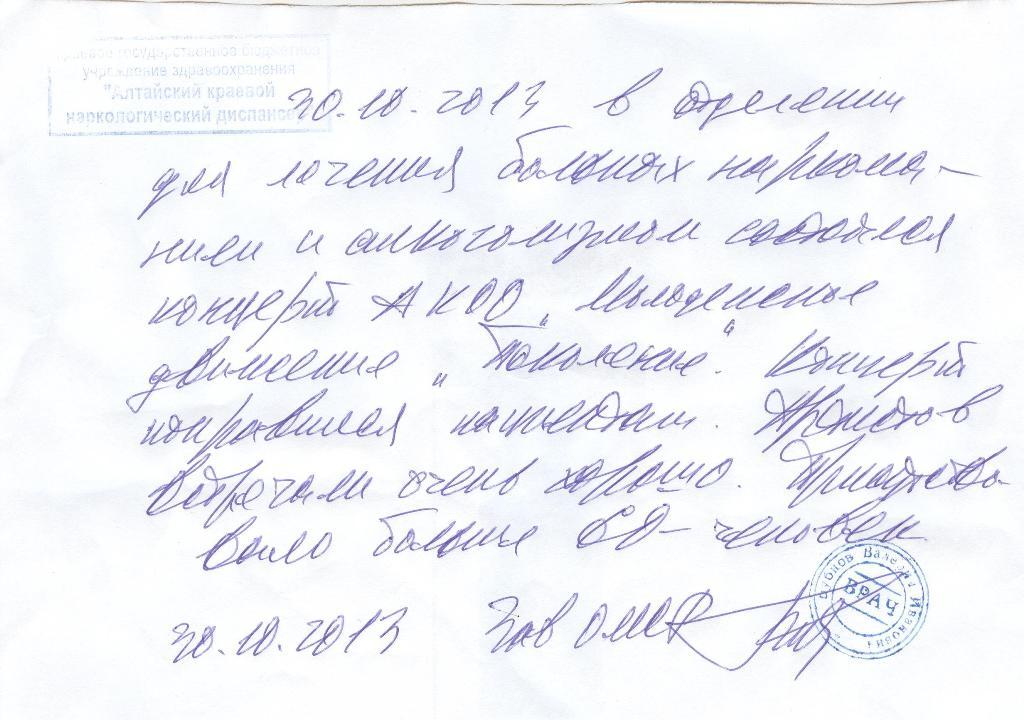 краевое государственное бюджетное
учреждение здравоохранения
"Алтайский краевой
наркологический диспансер
30.10.2013 в отделении
для лечения больных наркома-
нией и алкоголизмом состоялся
концерт АКОО „Молодежное
движение „Поколение". Концерт
понравился пациентам. Артистов
встречали очень хорошо. Присутство-
вало больше 60 человек
30.10.2013 Зав
Бубнов Валерий Иванович
ВРАЧ